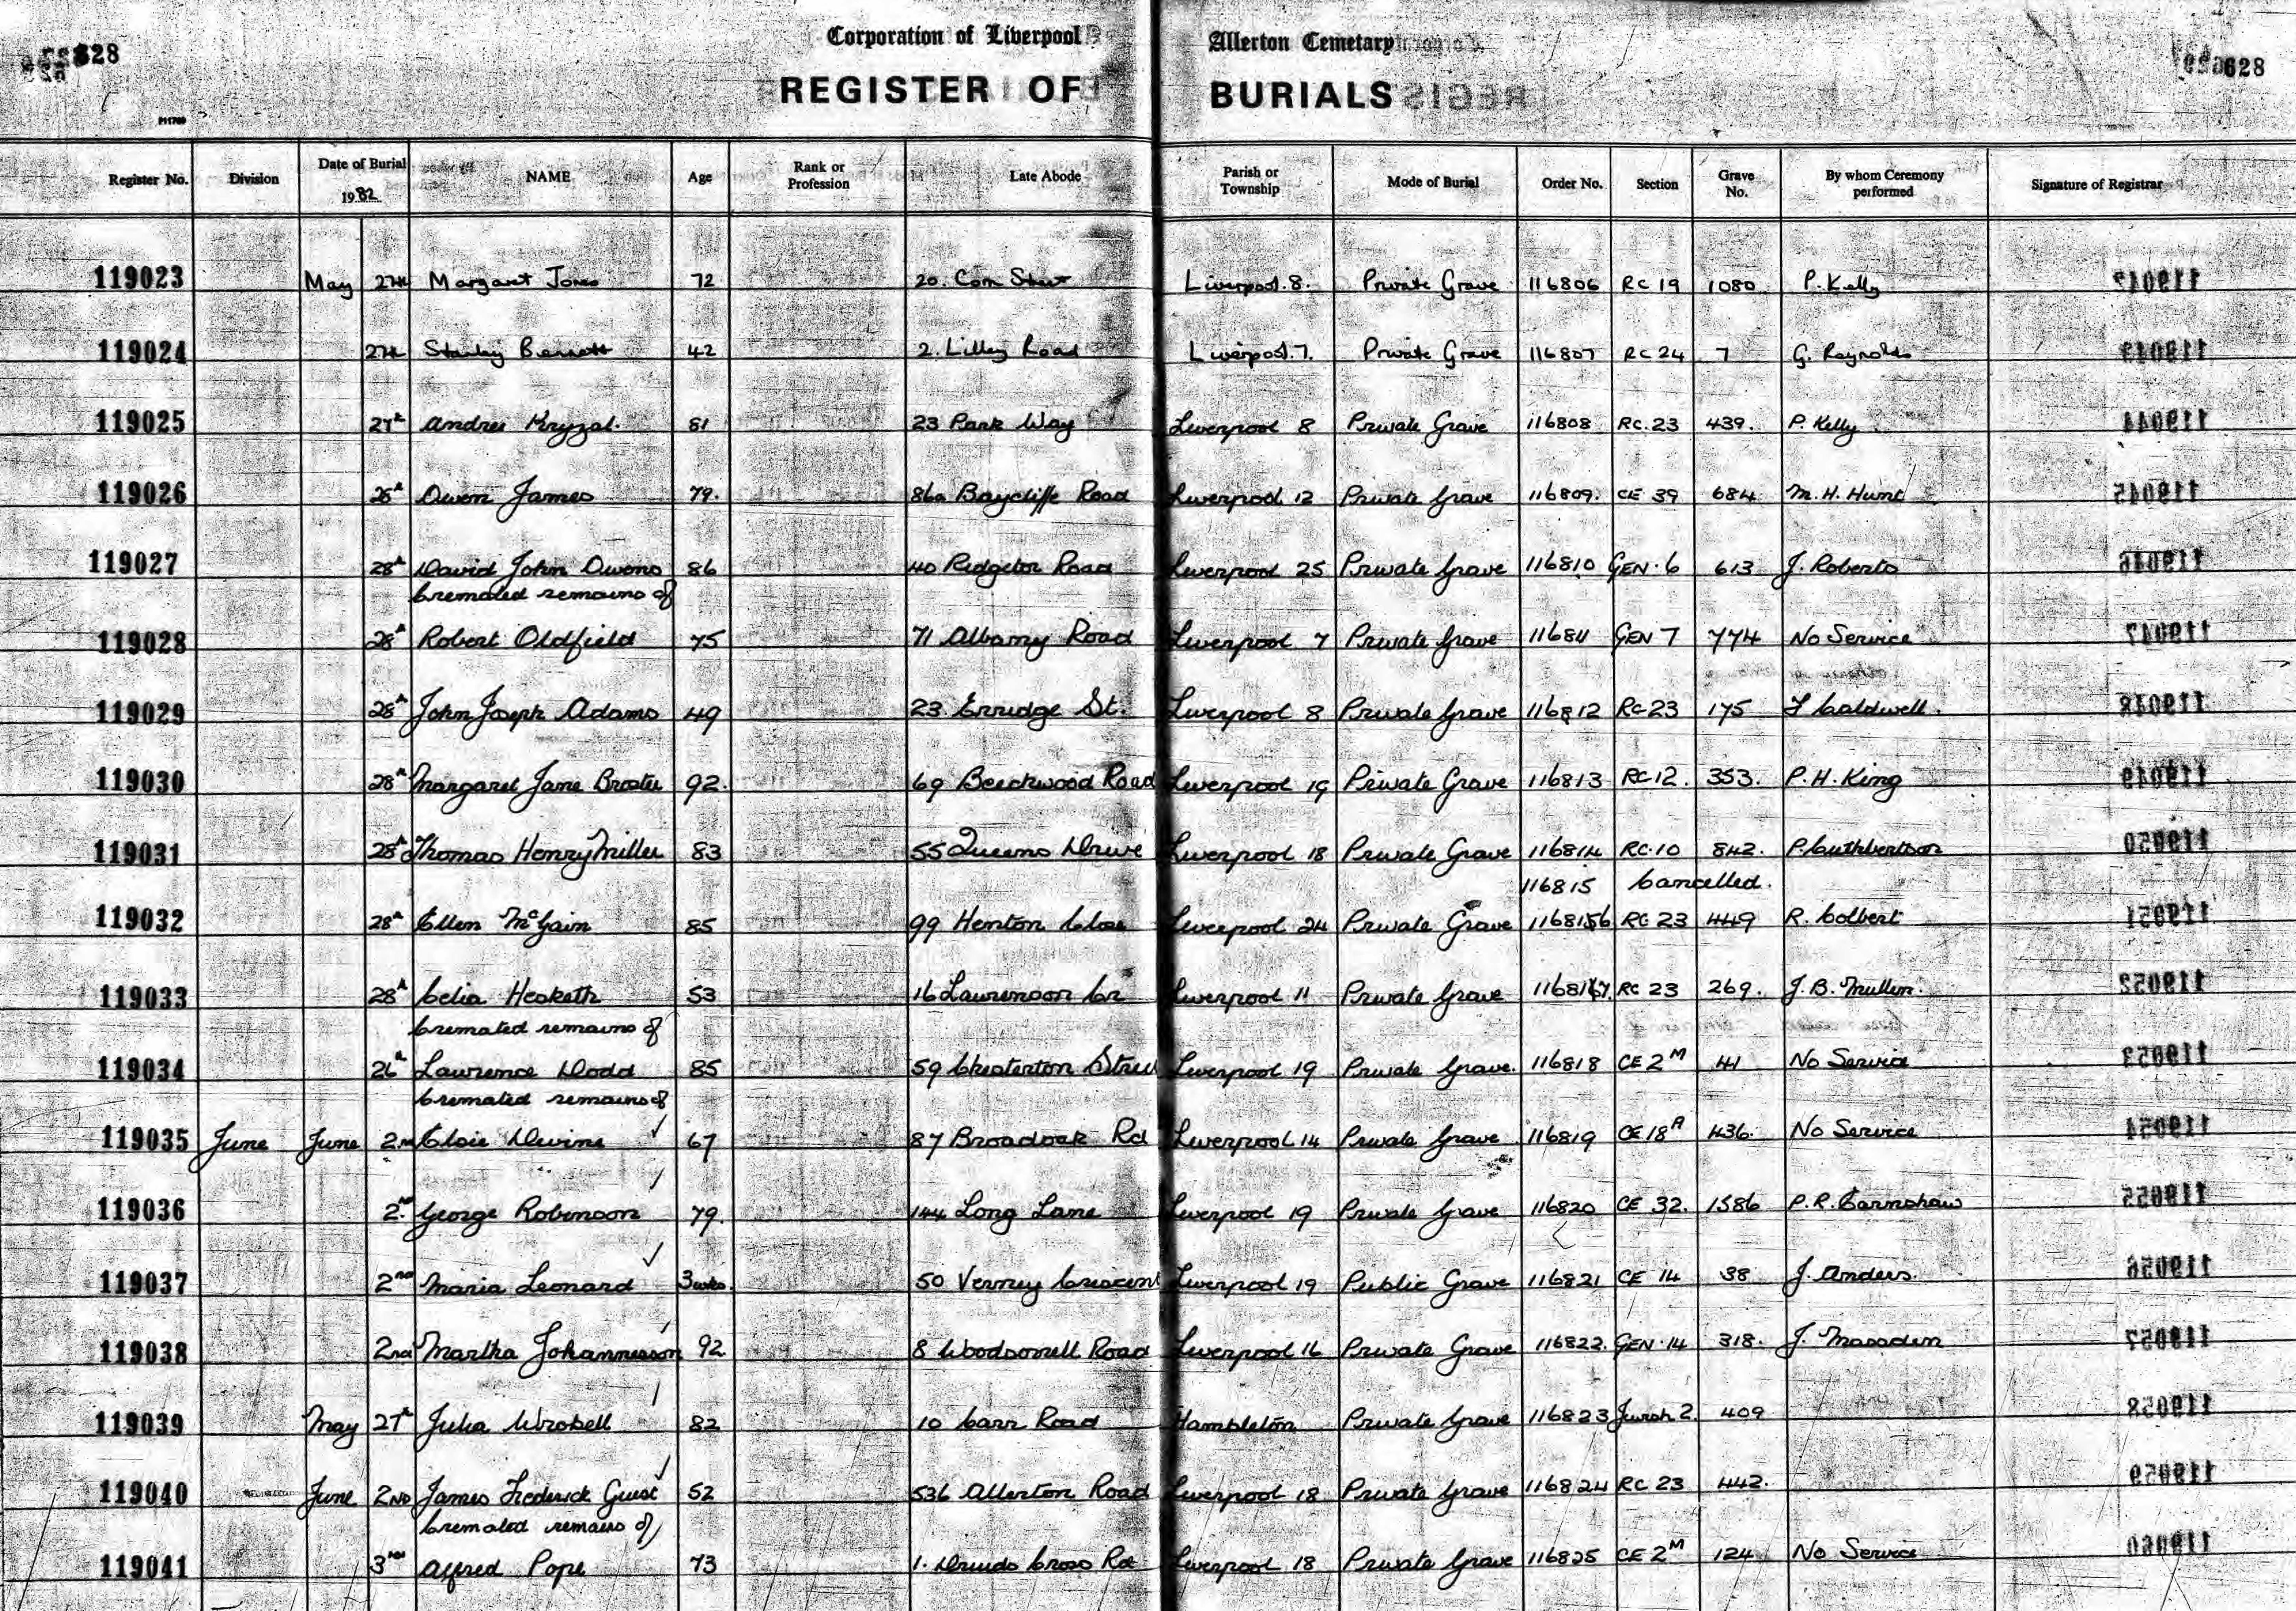 628 Corporation of Liverpool Allerton Cemetary 628
REGISTER OF BURIALS
P11700
Register No. Division Date of Burial 1982 NAME Age Rank or Profession Late Abode Parish or Township Mode of Burial Order No. Section Grave No. By whom Ceremony performed Signature of Registrar
119023 May 27th Margaret Jones 72 20. Corn Street Liverpool.8. Private Grave 116806 RC 19 1080 P. Kelly
119024 27th Stanley Bennett 42 2. Lilley Road Liverpool.7. Private Grave 116807 RC 24 7 G. Reynolds
119025 27th Andrei Kryzal. 81 23 Park Way Liverpool 8 Private Grave 116808 RC.23 439. P. Kelly
119026 Owen James 79. 86a Baycliffe Road Liverpool 12 Private Grave 116809. CE 39 684 M.H. Hunt
119027 28th David John Owens 86 40 Ridgetor Road Liverpool 25 Private Grave 116810 GEN.6 613 J. Roberts
Cremated remains of
119028 28th Robert Oldfield 75 71 Albany Road Liverpool 7 Private Grave 116811 GEN 7 774 No Service
119029 28th John Joseph Adams 49 23. Erridge St. Liverpool 8 Private Grave 116812 RC 23 175 Caldwell.
119030 28th Margaret Jane Broster 92. 69 Beechwood Road Liverpool 19 Private Grave 116813 RC 12. 353. P.H. King
119031 28th Thomas Henry Miller 83 55 Queens Drive Liverpool 18 Private Grave 116814 RC.10 842. P. Cuthbertson
116815 Cancelled.
119032 28th Ellen McGain 85 99 Henton Close Liverpool 24 Private Grave 116816 RC 23 449 R. Colbert
119033 28th Celia Hesketh 53 16 Laurenson Cr Liverpool 11 Private Grave 116817. RC 23 269. J.B. Mullin.
Cremated remains of
119034 26th Lawrence Dodd 85 59 Chesterton Street Liverpool 19 Private Grave. 116818 CE 2M 41 No Service
Cremated remains of
119035 June June 2nd Elsie Devine 67 87 Broadoak Rd Liverpool 14 Private Grave 116819 CE 18A 436. No Service
119036 2nd George Robinson 79. 144 Long Lane Liverpool 19 Private Grave 116820 CE 32. 1586 P.R. Earnshaw
119037 2nd Maria Leonard 3wks. 50 Verney Crescent Liverpool 19 Public Grave 116821 CE 14 38 J. Anders.
119038 2nd Martha Johannesson 92 8 Road Liverpool 16 Private Grave 116822. GEN.14 318. J. Marsden
119039 May 27th Julia Wrobell 82 10 Carr Road Hambleton Private Grave 116823 Jewish 2. 409
119040 June 2ND James Frederick Guest 52 536 Allerton Road Liverpool 18 Private Grave 116824 RC 23 442.
Cremated remains of
119041 3rd Alfred Pope 73 1. Druids Cross Rd Liverpool 18 Private Grave 116825 CE 2M 124 No Service